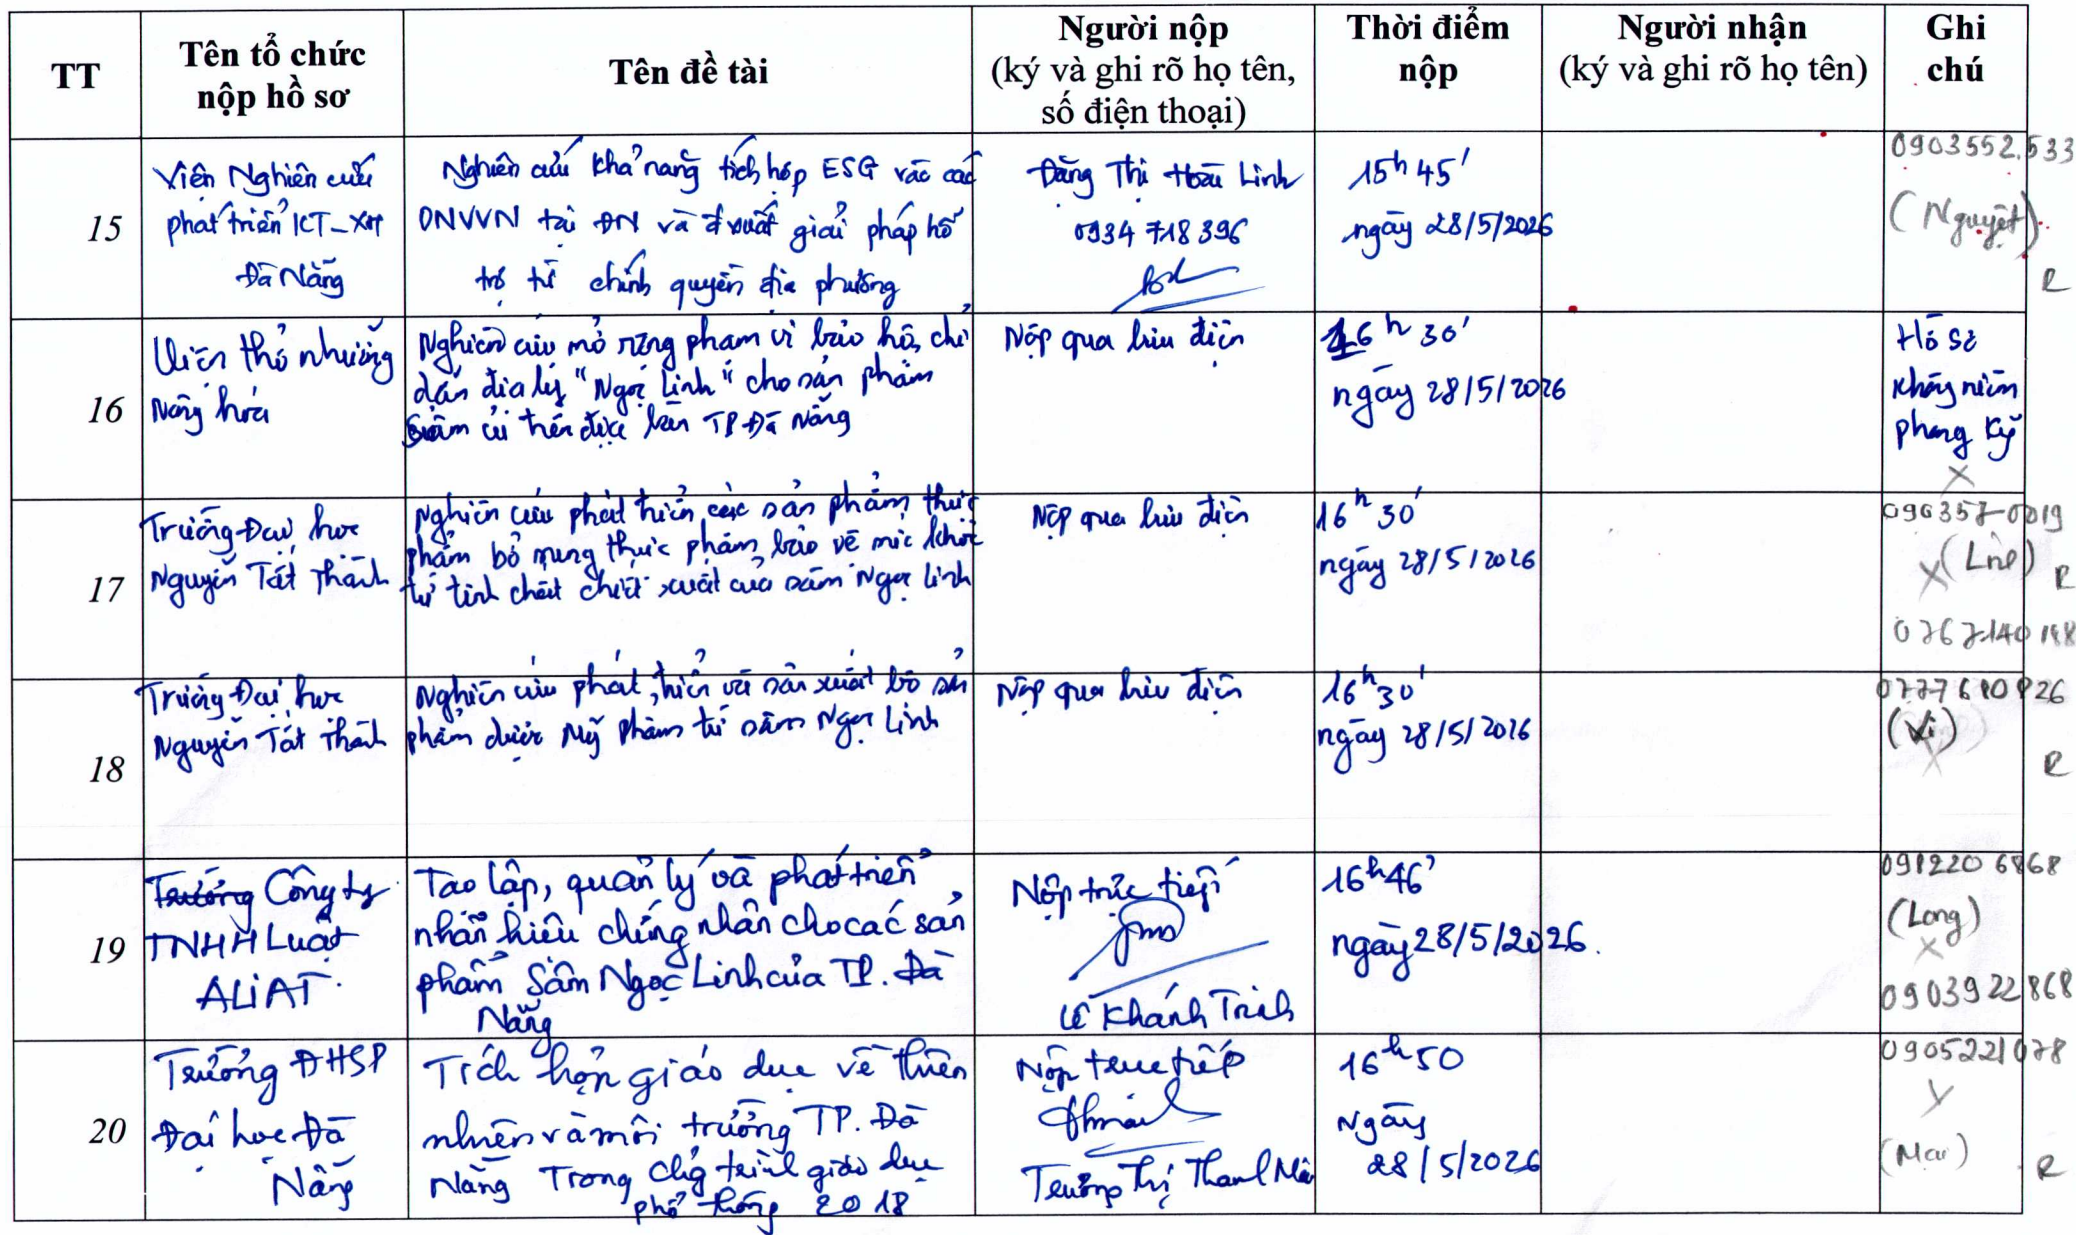 TT
Tên tổ chức
nộp hồ sơ
Tên đề tài
Người nộp
(ký và ghi rõ họ tên,
số điện thoại)
Thời điểm
nộp
Người nhận
(ký và ghi rõ họ tên)
Ghi
chú
15
Viện Nghiên cứu
phát triển ICT_XH
Đà Nẵng
Nghiên cứu khả năng tích hợp ESG vào các
DNVVN tại ĐN và đ xuất giải pháp hỗ
trợ từ chính quyền địa phương
Đặng Thị Hoài Linh
0934 718 396
15h 45'
ngày 28/5/2026
0903552.533
(Nguyệt)
R
16
Viện thổ nhưỡng
Nông hóa
Nghiên cứu mở rộng phạm vi bảo hộ chỉ
dẫn địa lý "Ngọc Linh" cho sản phẩm
Sâm củ trên địa bàn TP Đà Nẵng
Nộp qua bưu điện
16h 30'
ngày 28/5/2026
Hồ sơ
không niêm
phong kỹ
X
17
Trường Đại học
Nguyễn Tất Thành
Nghiên cứu phát triển các sản phẩm thực
phẩm bổ sung thực phẩm bảo vệ sức khỏe
từ tinh chất chiết xuất của sâm Ngọc Linh
Nộp qua bưu điện
16h 30'
ngày 28/5/2026
X
R
18
Trường Đại học
Nguyễn Tất Thành
Nghiên cứu phát triển và sản xuất bộ sản
phẩm dược Mỹ phẩm từ sâm Ngọc Linh
Nộp qua bưu điện
16h 30'
ngày 28/5/2026
(Vi)
R
19
Trường Công ty
TNHH Luật
ALIAT.
Tạo lập, quản lý và phát triển
nhãn hiệu chứng nhận cho các sản
phẩm Sâm Ngọc Linh của TP. Đà
Nẵng
Nộp trực tiếp
Lê Khánh Trinh
16h46'
ngày 28/5/2026.
0912206868
(Long)
X
0903922868
20
Trường ĐHSP
Đại học Đà
Nẵng
Tích hợp giáo dục về thiên
nhiên và môi trường TP. Đà
Nẵng Trong chg trình giáo dục
phổ thông 2018
Nộp trực tiếp
Trương Thị Thanh Mai
16h50
Ngày
28/5/2026
0905221078
(Mai)
R